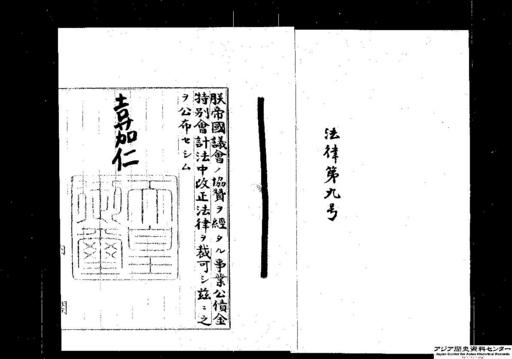 法律第九号
朕帝國議會ノ協賛ヲ經タル事業公債金
特別會計法中改正法律ヲ裁可シ玆ニ之
ヲ公布セシム
嘉仁
天皇
御璽
内閣
アジア歴史資料センター
Japan Center for Asian Historical Records